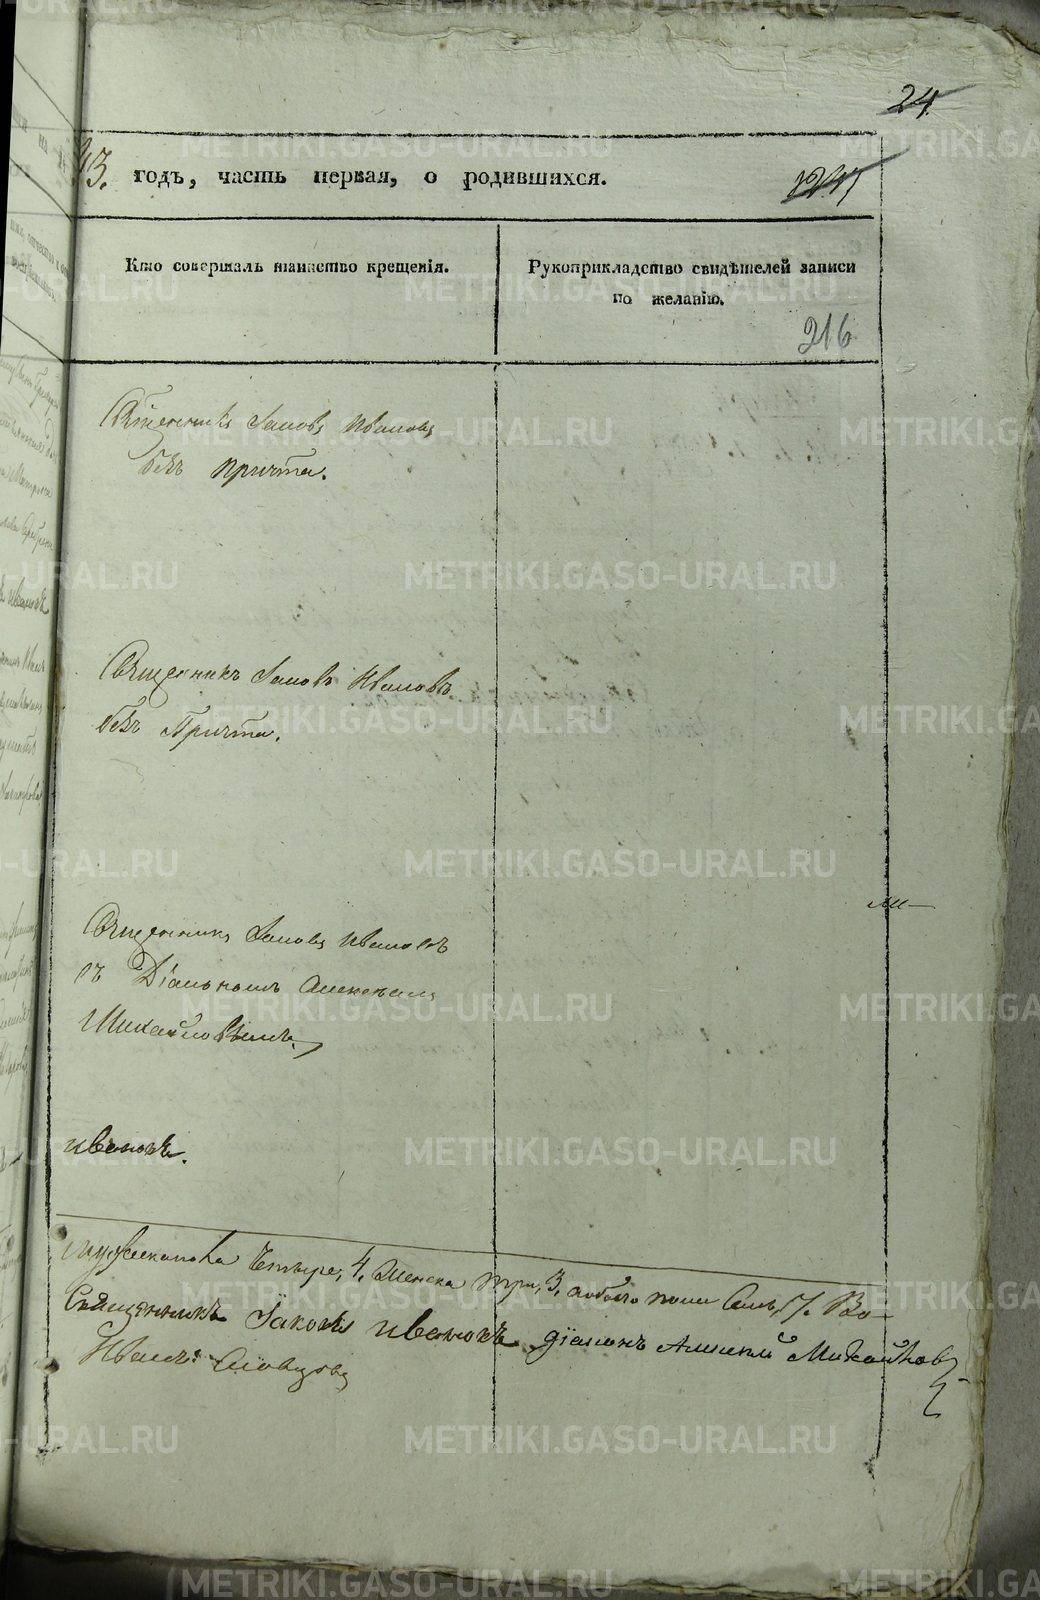 24
13. годъ, часть первая, о родившихся.
Кто совершалъ таинство крещенія.
Рукоприкладство свидѣтелей записи
по желанію.
216
Священникъ Іаковъ Ивановъ
безъ причта.
Священникъ Іаковъ Ивановъ
безъ Причта.
Священникъ Іаковъ Ивановъ
съ Діакономъ Алексеемъ
Михайловымъ.
Ивановъ.
мужескаго Четыре, 4. Женска три, 3. обоего пола Семь, 7. Во-
Священникъ Іаковъ Ивановъ діаконъ Алексей Михайловъ
METRIKI.GASO-URAL.RU